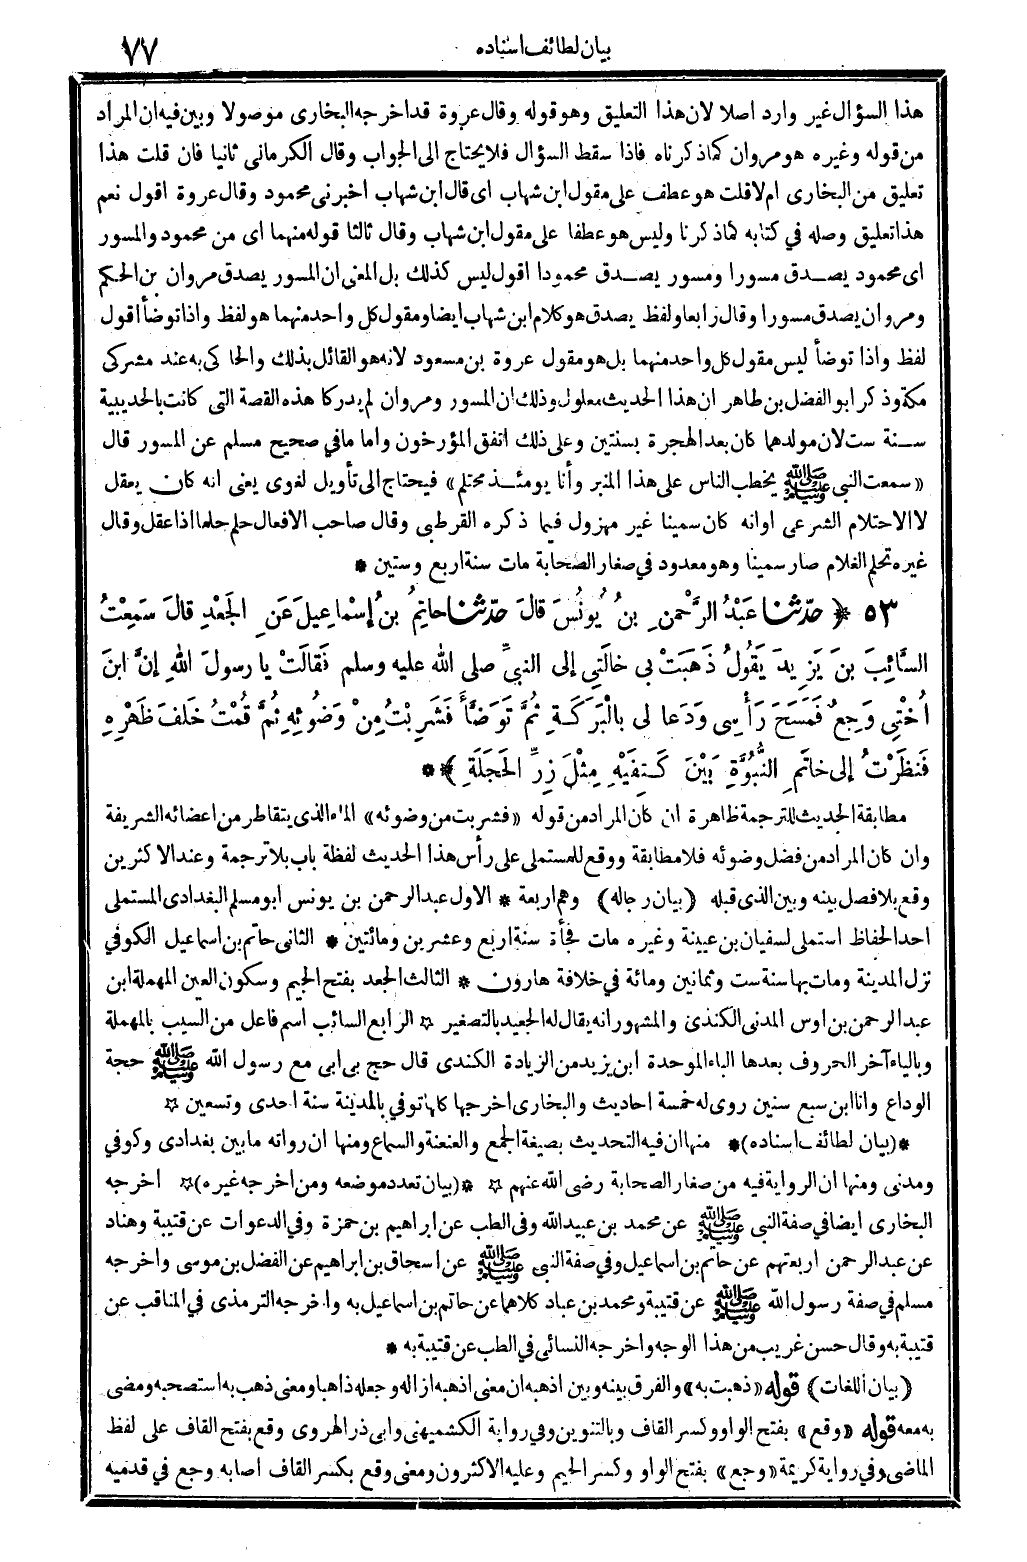 بيان لطائف اسناده ٧٧
هذا السؤال غير وارد اصلا لان هذا التعليق وهو قوله وقال عروة قد اخرجه البخارى موصولا وبين فيه ان المراد
من قوله وغيره هو مروان كما ذكرناه فاذا سقط السؤال فلا يحتاج الى الجواب وقال الكرمانى ثانيا فان قلت هذا
تعليق من البخارى ام لا قلت هو عطف على مقول ابن شهاب اى قال ابن شهاب اخبرنى محمود وقال عروة اقول نعم
هذا تعليق وصله في كتابه كما ذكرنا وليس هو عطفا على مقول ابن شهاب وقال ثالثا قوله منهما اى من محمود والمسور
اى محمود يصدق مسورا ومسور يصدق محمودا اقول ليس كذلك بل المعنى ان المسور يصدق مروان بن الحكم
ومروان يصدق مسورا وقال رابعا ولفظ يصدق هو كلام ابن شهاب ايضا ومقول كل واحد منهما هو لفظ واذا توضأ اقول
لفظ واذا توضأ ليس مقول كل واحد منهما بل هو مقول عروة بن مسعود لانه هو القائل بذلك والحاكى به عند مشركى
مكة وذكر ابو الفضل بن طاهر ان هذا الحديث معلول وذلك ان المسور ومروان لم يدركا هذه القصة التى كانت بالحديبية
سنة ست لان مولدهما كان بعد الهجرة بسنتين وعلى ذلك اتفق المؤرخون واما ما في صحيح مسلم عن المسور قال
«سمعت النبى ﷺ يخطب الناس على هذا المنبر وأنا يومئذ محتلم» فيحتاج الى تأويل لغوى يعنى انه كان يعقل
لا الاحتلام الشرعى او انه كان سمينا غير مهزول فيما ذكره القرطبى وقال صاحب الافعال حلم حلما اذا عقل وقال
غيره تحلم الغلام صار سمينا وهو معدود في صغار الصحابة مات سنة اربع وستين *
٥٣ ﴿ حدّثنا عَبْدُ الرَّحْمنِ بنُ يُونُسَ قالَ حدّثنا حاتِمُ بنُ إسْماعِيلَ عَنِ الجَعْدِ قالَ سَمِعْتُ
السَّائِبَ بنَ يَزِيدَ يَقُولُ ذَهَبَتْ بى خالَتِى إلى النبىِّ صلى الله عليه وسلم فَقالَتْ يا رسولَ اللهِ إنَّ ابنَ
اُخْتِى وَجِعٌ فَمَسَحَ رَأْسِى وَدَعا لى بالْبَرَكَةِ ثُمَّ تَوَضَّأَ فَشَرِبْتُ مِنْ وَضُوئِهِ ثُمَّ قُمْتُ خَلفَ ظَهْرِهِ
فَنظَرْتُ إلى خاتَمِ النُّبُوَّةِ بَيْنَ كَتِفَيْهِ مِثْلَ زِرِّ الحَجَلَةِ ﴾ *
مطابقة الحديث للترجمة ظاهرة ان كان المراد من قوله «فشربت من وضوئه» الماء الذى يتقاطر من اعضائه الشريفة
وان كان المراد من فضل وضوئه فلا مطابقة ووقع للمستملى على رأس هذا الحديث لفظة باب بلا ترجمة وعند الاكثرين
وقع بلا فصل بينه وبين الذى قبله (بيان رجاله) وهم اربعة * الاول عبد الرحمن بن يونس ابو مسلم البغدادى المستملى
احد الحفاظ استملى لسفيان بن عيينة وغيره مات فجأة سنة اربع وعشرين ومائتين * الثانى حاتم بن اسماعيل الكوفي
نزل المدينة ومات بها سنة ست وثمانين ومائة في خلافة هارون * الثالث الجعد بفتح الجيم وسكون العين المهملة ابن
عبد الرحمن بن اوس المدنى الكندى والمشهور انه يقال له الجعيد بالتصغير ☆ الرابع السائب اسم فاعل من السيب بالمهملة
وبالياء آخر الحروف بعدها الباء الموحدة ابن يزيد من الزيادة الكندى قال حج بى ابى مع رسول الله ﷺ حجة
الوداع وانا ابن سبع سنين روى له خمسة احاديث والبخارى اخرجها كلها توفي بالمدينة سنة احدى وتسعين ☆
*(بيان لطائف اسناده)* منها ان فيه التحديث بصيغة الجمع والعنعنة والسماع ومنها ان رواته ما بين بغدادى وكوفي
ومدنى ومنها ان الرواية فيه من صغار الصحابة رضى الله عنهم ☆ *(بيان تعدد موضعه ومن اخرجه غيره)☆ اخرجه
البخارى ايضا في صفة النبى ﷺ عن محمد بن عبيد الله وفى الطب عن ابراهيم بن حمزة وفي الدعوات عن قتيبة وهناد
عن عبد الرحمن اربعتهم عن حاتم بن اسماعيل وفي صفة النبى ﷺ عن اسحاق بن ابراهيم عن الفضل بن موسى واخرجه
مسلم في صفة رسول الله ﷺ عن قتيبة ومحمد بن عباد كلاهما عن حاتم بن اسماعيل به واخرجه الترمذى في المناقب عن
قتيبة به وقال حسن غريب من هذا الوجه واخرجه النسائى في الطب عن قتيبة به *
(بيان اللغات) قوله «ذهبت به» والفرق بينه وبين اذهبه ان معنى اذهبه ازاله وجعله ذاهبا ومعنى ذهب به استصحبه ومضى
به معه قوله «وقع» بفتح الواو وكسر القاف وبالتنوين وفي رواية الكشميهنى وابى ذر الهروى وقع بفتح القاف على لفظ
الماضى وفي رواية كريمة «وجع» بفتح الواو وكسر الجيم وعليه الاكثرون ومعنى وقع بكسر القاف اصابه وجع في قدميه